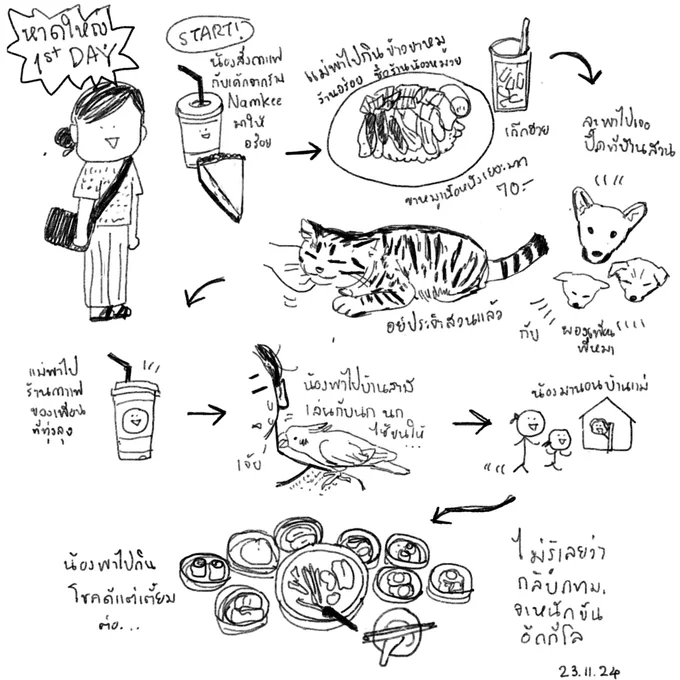 หาดใหญ่
1ST DAY
START!
น้องสั่งกาแฟ
กับเค้กจากร้าน
Namkee
มาให้
อร่อย
แม่พาไปกิน ข้าวขาหมู
ร้านอร่อย ชื่อร้านน้อยหมวย
เก๊กฮวย
ขาหมูเนื้อหนังเยอะมาก
70.-
ละพาไปเจอ
ปี๊ดที่บ้านสวน
อยู่ประจำสวนแล้ว
กับ
ผองเพื่อน
พี่หมา
แม่พาไป
ร้านกาแฟ
ของเพื่อน
ที่ทุ่งลุง
น้องพาไปบ้านสามี
เล่นกับนก นก
ไซ้ขนให้...
น้องมานอนบ้านแม่
น้องพาไปกิน
โชคดีแต่เตี้ยม
ต่อ...
ไม่รู้เลยว่า
กลับกทม.
จะหนักขึ้น
อีกกี่โล
23.11.24